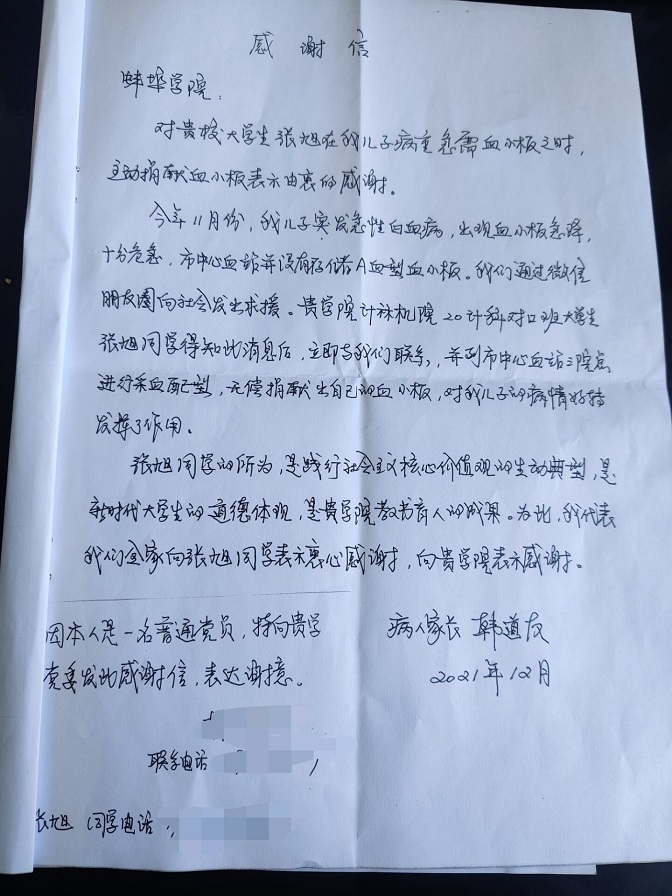 感谢信
蚌埠学院：
对贵校大学生张旭在我儿子病重急需血小板之时，
主动捐献血小板表示由衷的感谢。
今年11月份，我儿子突发急性白血病，出现血小板急降，
十分危急，市中心血站并没有存储A血型血小板。我们通过微信
朋友圈向社会发出求援。贵学院计算机院20计科对口班大学生
张旭同学得知此消息后，立即与我们联系，并到市中心血站三院点
进行采血配型，无偿捐献出自己的血小板，对我儿子的病情好转
发挥了作用。
张旭同学的所为，是践行社会主义核心价值观的生动典型，是
新时代大学生的道德体现，是贵学院教书育人的成果。为此，我代表
我们全家向张旭同学表示衷心感谢，向贵学院表示感谢。
因本人是一名普通党员，特向贵学
党委发此感谢信，表达谢意。
病人家长 韩道友
2021年12月
联系电话
张旭 同学电话：